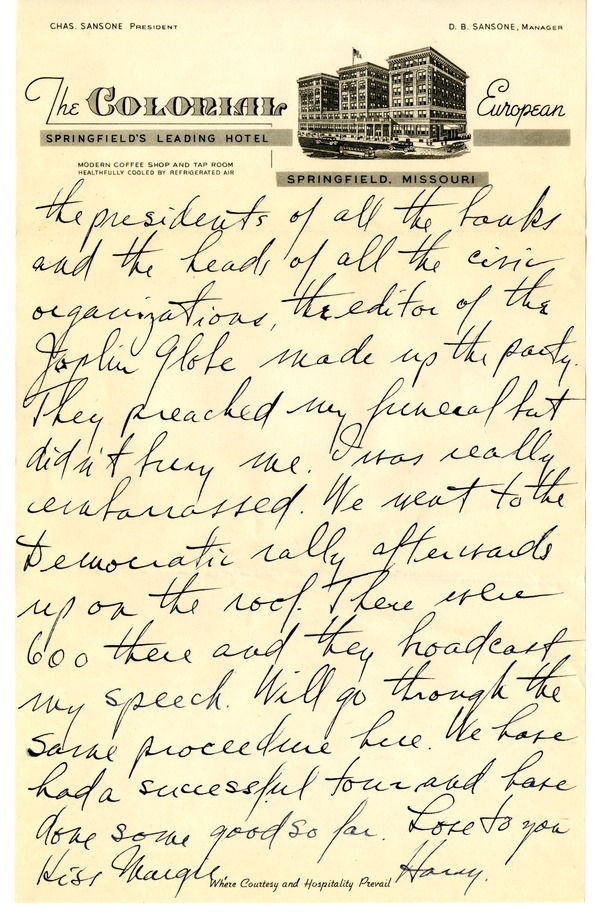 CHAS. SANSONE PRESIDENT
D. B. SANSONE, MANAGER
The COLONIAL European
SPRINGFIELD'S LEADING HOTEL
MODERN COFFEE SHOP AND TAP ROOM
HEALTHFULLY COOLED BY REFRIGERATED AIR
SPRINGFIELD, MISSOURI
the presidents of all the banks
and the heads of all the civic
organizations, the editor of the
Joplin Globe made up the party.
They preached my funeral but
didn't bury me. I was really
embarrassed. We went to the
Democratic rally afterwards
up on the roof. There were
600 there and they broadcast
my speech. Will go through the
same proceedure here. We have
had a successful tour and have
done some good so far. Love to you
Kiss Margie. Harry.
Where Courtesy and Hospitality Prevail